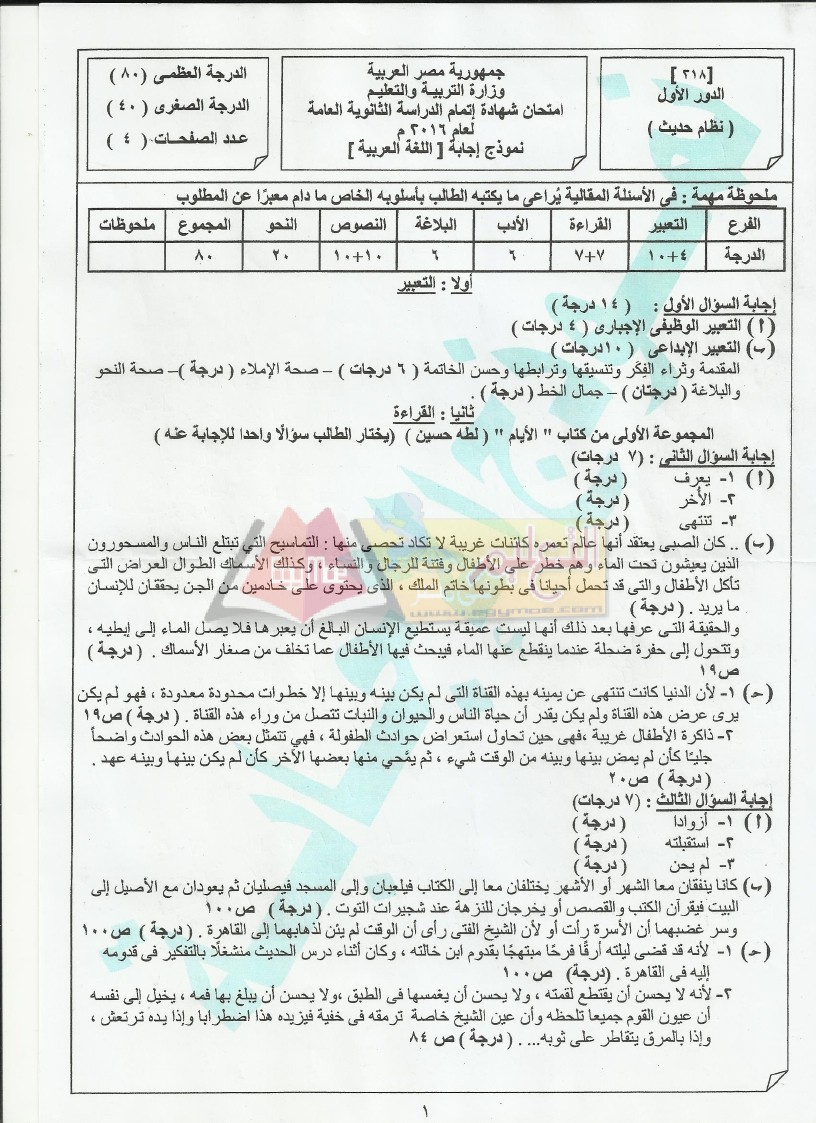 [٢١٨]
الدور الأول
( نظام حديث )
جمهورية مصر العربية
وزارة التربية والتعليم
امتحان شهادة إتمام الدراسة الثانوية العامة
لعام ٢٠١٦ م
نموذج إجابة [ اللغة العربية ]
الدرجة العظمى ( ٨٠ )
الدرجة الصغرى ( ٤٠ )
عدد الصفحات ( ٤ )
ملحوظة مهمة : فى الأسئلة المقالية يُراعى ما يكتبه الطالب بأسلوبه الخاص ما دام معبرًا عن المطلوب
الفرع التعبير القراءة الأدب البلاغة النصوص النحو المجموع ملحوظات
الدرجة ٤+١٠ ٧+٧ ٦ ٦ ١٠+١٠ ٢٠ ٨٠
أولا : التعبير
إجابة السؤال الأول : ( ١٤ درجة )
( أ ) التعبير الوظيفى الإجبارى ( ٤ درجات )
(ب) التعبير الإبداعى ( ١٠درجات )
المقدمة وثراء الفِكَر وتنسيقها وترابطها وحسن الخاتمة ( ٦ درجات ) – صحة الإملاء ( درجة )– صحة النحو
والبلاغة ( درجتان ) – جمال الخط ( درجة ) .
ثانيا : القراءة
المجموعة الأولى من كتاب " الأيام " ( لطه حسين ) (يختار الطالب سؤالًا واحدا للإجابة عنه )
إجابة السؤال الثانى : ( ٧ درجات)
( أ ) ١- يعرف ( درجة )
٢- الأُخر ( درجة )
٣- تنتهى ( درجة )
(ب) .. كان الصبى يعتقد أنها عالم تعمره كائنات غريبة لا تكاد تحصى منها : التماسيح التي تبتلع الناس والمسحورون
الذين يعيشون تحت الماء وهم خطر على الأطفال وفتنة للرجال والنساء ، وكذلك الأسماك الطوال العراض التى
تأكل الأطفال والتى قد تحمل أحيانا فى بطونها خاتم الملك ، الذى يحتوى على خادمين من الجن يحققان للإنسان
ما يريد . ( درجة )
والحقيقة التى عرفها بعد ذلك أنها ليست عميقة يستطيع الإنسان البالغ أن يعبرها فلا يصل الماء إلى إبطيه ،
وتتحول إلى حفرة ضحلة عندما ينقطع عنها الماء فيبحث فيها الأطفال عما تخلف من صغار الأسماك . ( درجة )
ص١٩
(حـ) ١- لأن الدنيا كانت تنتهى عن يمينه بهذه القناة التى لم يكن بينه وبينها إلا خطوات محدودة معدودة ، فهو لم يكن
يرى عرض هذه القناة ولم يكن يقدر أن حياة الناس والحيوان والنبات تتصل من وراء هذه القناة . ( درجة ) ص١٩
٢- ذاكرة الأطفال غريبة ،فهى حين تحاول استعراض حوادث الطفولة ، فهي تتمثل بعض هذه الحوادث واضحاً
جليًا كأن لم يمض بينها وبينه من الوقت شيء ، ثم يمَّحي منها بعضها الآخر كأن لم يكن بينها وبينه عهد .
( درجة ) ص٢٠
إجابة السؤال الثالث : ( ٧ درجات)
( أ ) ١- أزوادا ( درجة )
٢- استقبلته ( درجة )
٣- لم يحن ( درجة )
(ب) كانا ينفقان معا الشهر أو الأشهر يختلفان معا إلى الكتاب فيلعبان وإلى المسجد فيصليان ثم يعودان مع الأصيل إلى
البيت فيقرآن الكتب والقصص أو يخرجان للنزهة عند شجيرات التوت . ( درجة ) ص١٠٠
وسر غضبهما أن الأسرة رأت أو لأن الشيخ الفتى رأى أن الوقت لم يئن لذهابهما إلى القاهرة . ( درجة ) ص١٠٠
(حـ) ١- لأنه قد قضى ليلته أرقًا فرحًا مبتهجًا بقدوم ابن خالته ، وكان أثناء درس الحديث منشغلًا بالتفكير فى قدومه
إليه فى القاهرة . (درجة) ص١٠٠
٢- لأنه لا يحسن أن يقتطع لقمته ، ولا يحسن أن يغمسها فى الطبق ،ولا يحسن أن يبلغ بها فمه ، يخيل إلى نفسه
أن عيون القوم جميعا تلحظه وأن عين الشيخ خاصة ترمقه فى خفية فيزيده هذا اضطرابا وإذا يده ترتعش ،
وإذا بالمرق يتقاطر على ثوبه.... . ( درجة ) ص ٨٤
١
www.egymoe.com